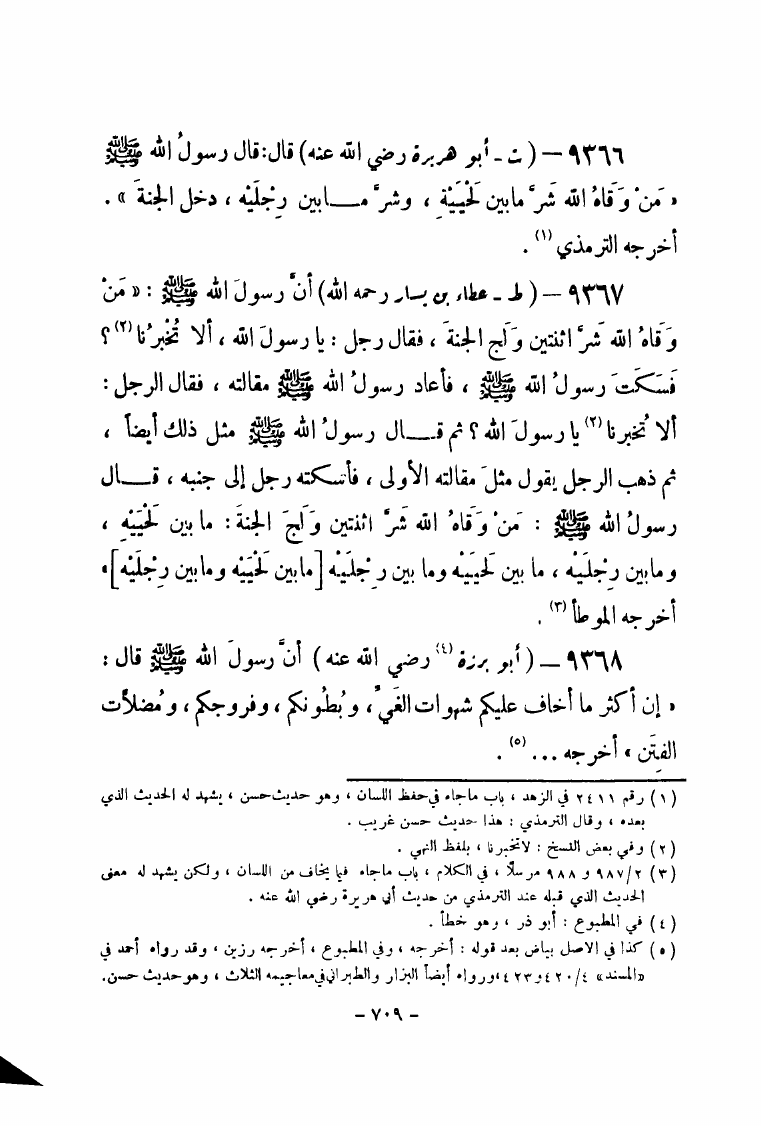 ٩٣٦٦ – ( ت ـ أبو هريرة رضي الله عنه ) قال : قال رسولُ الله ﷺ
« مَنْ وَقَاهُ الله شَرَّ مابين لَحْيَيْهِ ، وشرَّ مـــابين رِجْلَيْه ، دخل الجنةَ » .
أخرجه الترمذي (١) .
٩٣٦٧ – ( ط ـ عطاء بن يسار رحمه الله ) أنَّ رسولَ الله ﷺ : « مَنْ
وَقَاهُ الله شَرَّ اثنتين وَلَج الجنةَ ، فقال رجل : يا رسولَ الله ، ألا تُخْبِرُنا (٢) ؟
فَسَكَتَ رسولُ الله ﷺ ، فأعاد رسولُ الله ﷺ مقالته ، فقال الرجل :
ألا تُخبرنا (٢) يا رسولَ الله ؟ ثم قـــال رسولُ الله ﷺ مثل ذلك أيضاً ،
ثم ذهب الرجل يقول مثلَ مقالته الأولى ، فأسكته رجل إلى جنبه ، قـــال
رسولُ الله ﷺ : مَنْ وَقَاهُ الله شَرَّ اثنتين وَلَجَ الجنةَ : ما بين لَحْيَيْهِ ،
ومابين رِجْلَيْه ، ما بين لَحيَيْه وما بين رِجْلَيْه [ مابين لَحْيَيْه ومابين رِجْلَيْه ] »
أخرجه الموطأ (٣) .
٩٣٦٨ – ( أبو برزة (٤) رضي الله عنه ) أنَّ رسولَ الله ﷺ قال :
« إن أكثر ما أخاف عليكم شهوات الغَيِّ ، وبُطُونكم ، وفروجكم ، ومُضلاَّت
الفِتَن » أخرجه ... (٥) .
(١) رقم ٢٤١١ في الزهد ، باب ماجاء في حفظ اللسان ، وهو حديث حسن ، يشهد له الحديث الذي
بعده ، وقال الترمذي : هذا حديث حسن غريب .
(٢) وفي بعض النسخ : لاتخبرنا ، بلفظ النهي .
(٣) ٩٨٧/٢ و ٩٨٨ مرسلاً ، في الكلام ، باب ماجاء فيما يخاف من اللسان ، ولكن يشهد له معنى
الحديث الذي قبله عند الترمذي من حديث أبي هريرة رضي الله عنه .
(٤) في المطبوع : أبو ذر ، وهو خطأ .
(٥) كذا في الاصل بياض بعد قوله : أخرجه ، وفي المطبوع ، أخرجه رزين ، وقد رواه أحمد في
«المسند» ٤٢٠/٤ و٤٢٣ ، ورواه أيضاً البزار والطبراني في معاجيمه الثلاث ، وهو حديث حسن.
– ٧٠٩ –